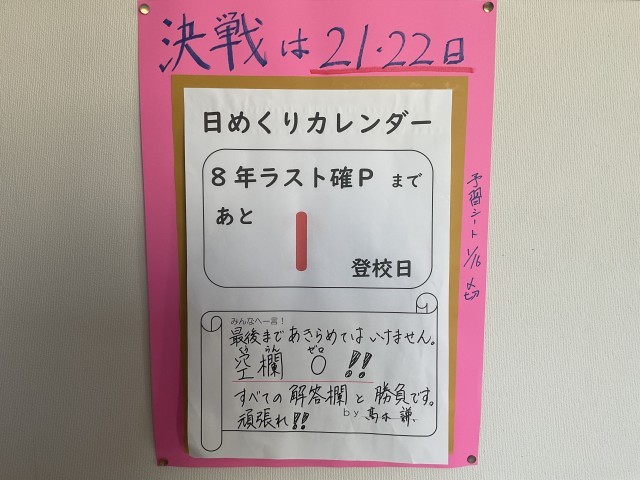 決戦は21・22日
日めくりカレンダー
8年ラスト確P まで
あと
1
登校日
予習シート 1/16 〆切
みんなへ一言！
最後まであきらめてはいけません。
くう らん ゼロ
空欄 0 !!
すべての解答欄と勝負です。
頑張れ!!
by 高木 謙